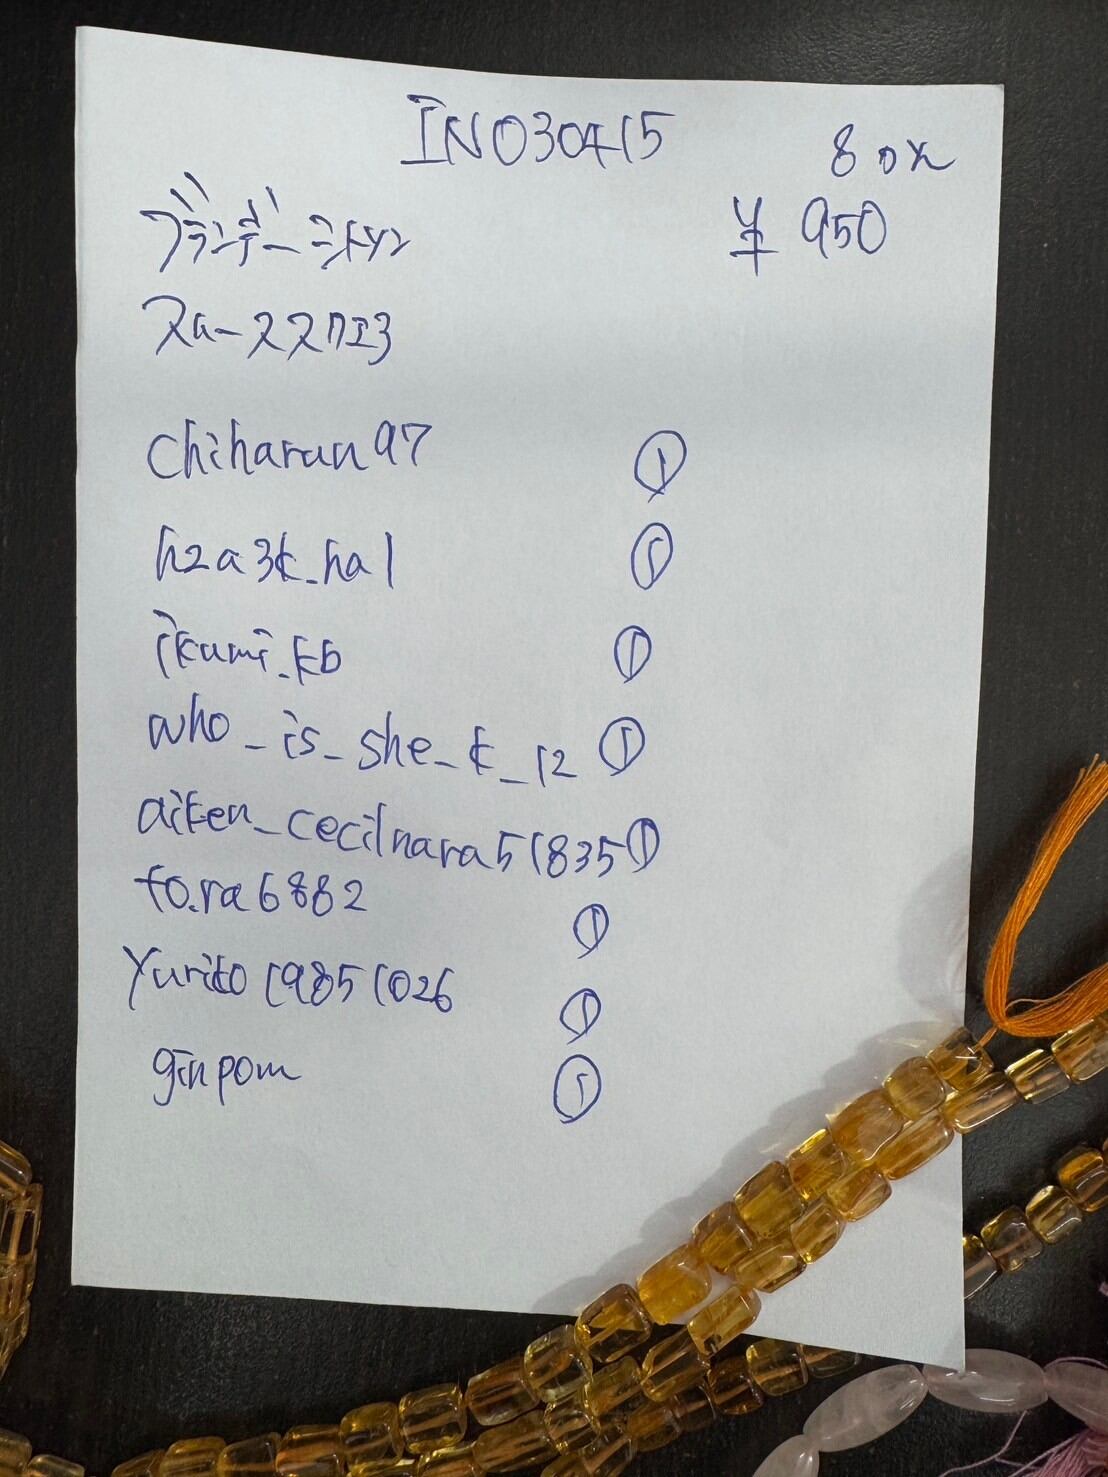 INO30415
8 on
ブランデーシトリン
¥ 950
スムースタンブル
chiharun97 ①
h2a3k_ha1 ①
ikumi.kb ①
who_is_she_k_12 ①
aiken_cecilnara51835 ①
to.ra6882 ①
Yurito19851026 ①
ginpom ①